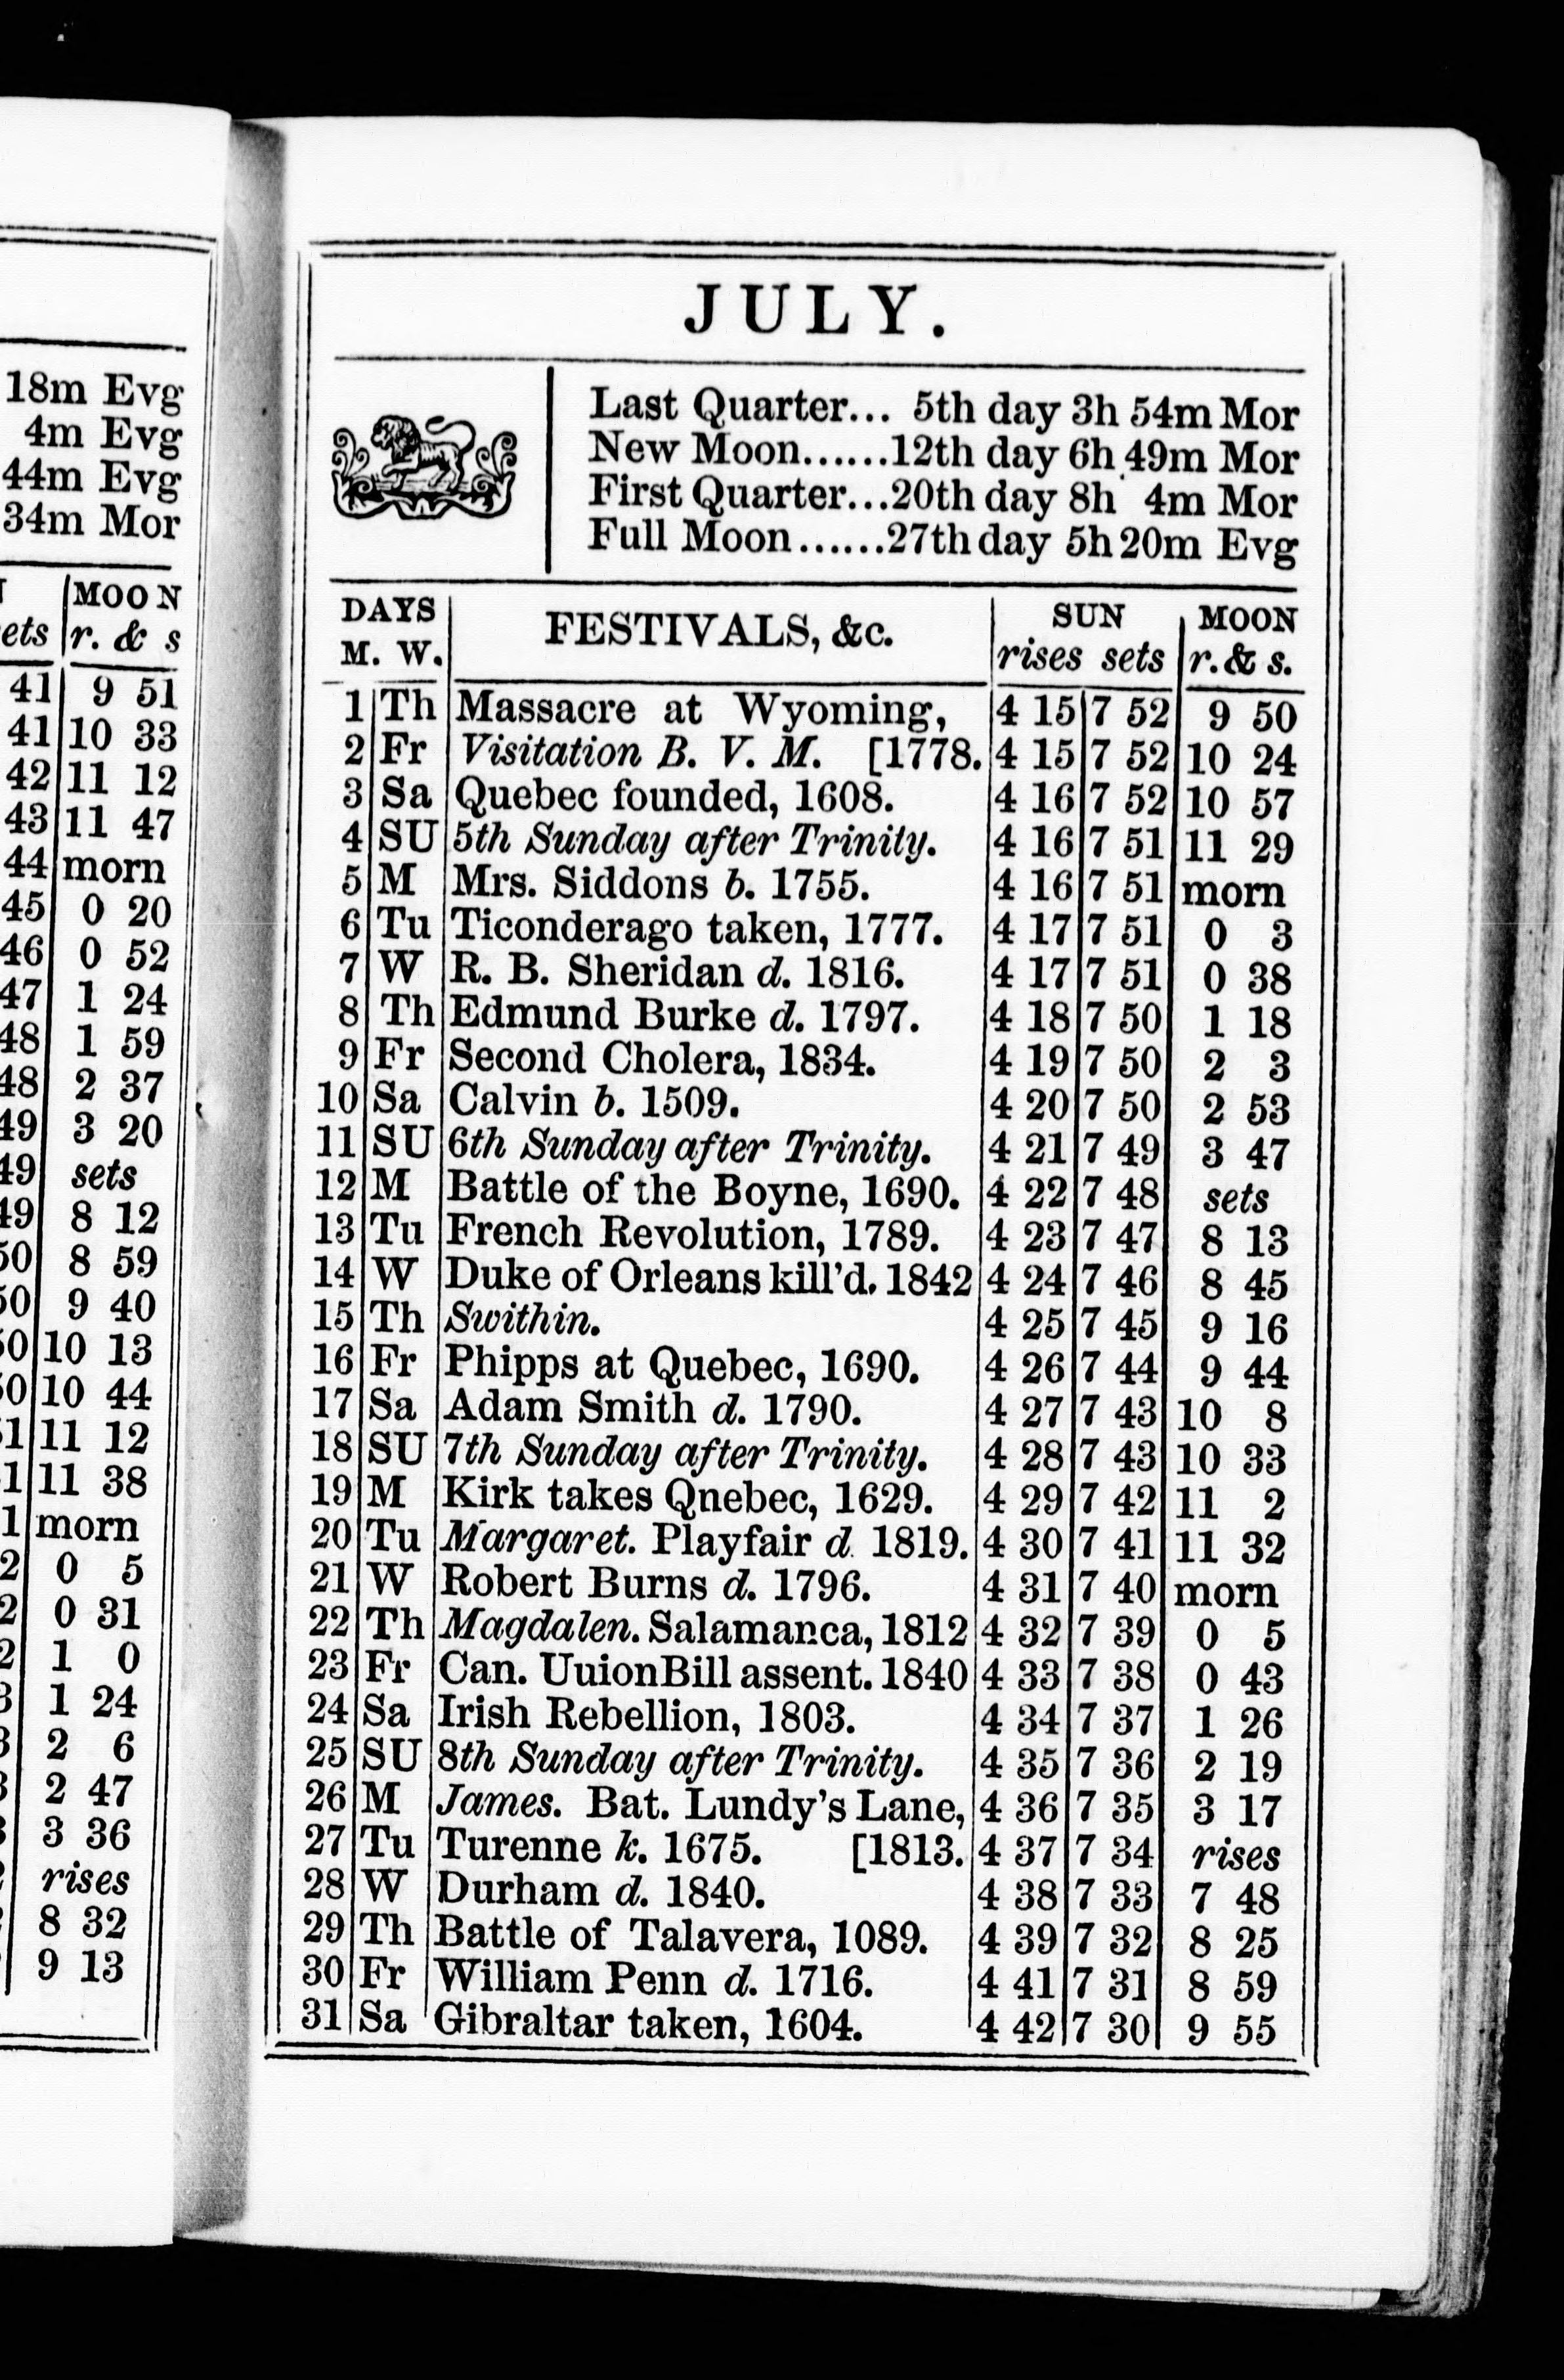 18m Evg
4m Evg
44m Evg
34m Mor
MOON
ets r. & s
41 9 51
41 10 33
42 11 12
43 11 47
44 morn
45 0 20
46 0 52
47 1 24
48 1 59
48 2 37
49 3 20
49 sets
49 8 12
50 8 59
50 9 40
50 10 13
50 10 44
51 11 12
1 11 38
1 morn
2 0 5
2 0 31
2 1 0
3 1 24
3 2 6
3 2 47
3 36
rises
8 32
9 13
JULY.
Last Quarter... 5th day 3h 54m Mor
New Moon......12th day 6h 49m Mor
First Quarter...20th day 8h 4m Mor
Full Moon......27th day 5h 20m Evg
DAYS FESTIVALS, &c. SUN MOON
M. W. rises sets r. & s.
1 Th Massacre at Wyoming, 4 15 7 52 9 50
2 Fr Visitation B. V. M. [1778. 4 15 7 52 10 24
3 Sa Quebec founded, 1608. 4 16 7 52 10 57
4 SU 5th Sunday after Trinity. 4 16 7 51 11 29
5 M Mrs. Siddons b. 1755. 4 16 7 51 morn
6 Tu Ticonderago taken, 1777. 4 17 7 51 0 3
7 W R. B. Sheridan d. 1816. 4 17 7 51 0 38
8 Th Edmund Burke d. 1797. 4 18 7 50 1 18
9 Fr Second Cholera, 1834. 4 19 7 50 2 3
10 Sa Calvin b. 1509. 4 20 7 50 2 53
11 SU 6th Sunday after Trinity. 4 21 7 49 3 47
12 M Battle of the Boyne, 1690. 4 22 7 48 sets
13 Tu French Revolution, 1789. 4 23 7 47 8 13
14 W Duke of Orleans kill'd. 1842 4 24 7 46 8 45
15 Th Swithin. 4 25 7 45 9 16
16 Fr Phipps at Quebec, 1690. 4 26 7 44 9 44
17 Sa Adam Smith d. 1790. 4 27 7 43 10 8
18 SU 7th Sunday after Trinity. 4 28 7 43 10 33
19 M Kirk takes Qnebec, 1629. 4 29 7 42 11 2
20 Tu Margaret. Playfair d. 1819. 4 30 7 41 11 32
21 W Robert Burns d. 1796. 4 31 7 40 morn
22 Th Magdalen. Salamanca, 1812 4 32 7 39 0 5
23 Fr Can. UuionBill assent. 1840 4 33 7 38 0 43
24 Sa Irish Rebellion, 1803. 4 34 7 37 1 26
25 SU 8th Sunday after Trinity. 4 35 7 36 2 19
26 M James. Bat. Lundy's Lane, 4 36 7 35 3 17
27 Tu Turenne k. 1675. [1813. 4 37 7 34 rises
28 W Durham d. 1840. 4 38 7 33 7 48
29 Th Battle of Talavera, 1089. 4 39 7 32 8 25
30 Fr William Penn d. 1716. 4 41 7 31 8 59
31 Sa Gibraltar taken, 1604. 4 42 7 30 9 55